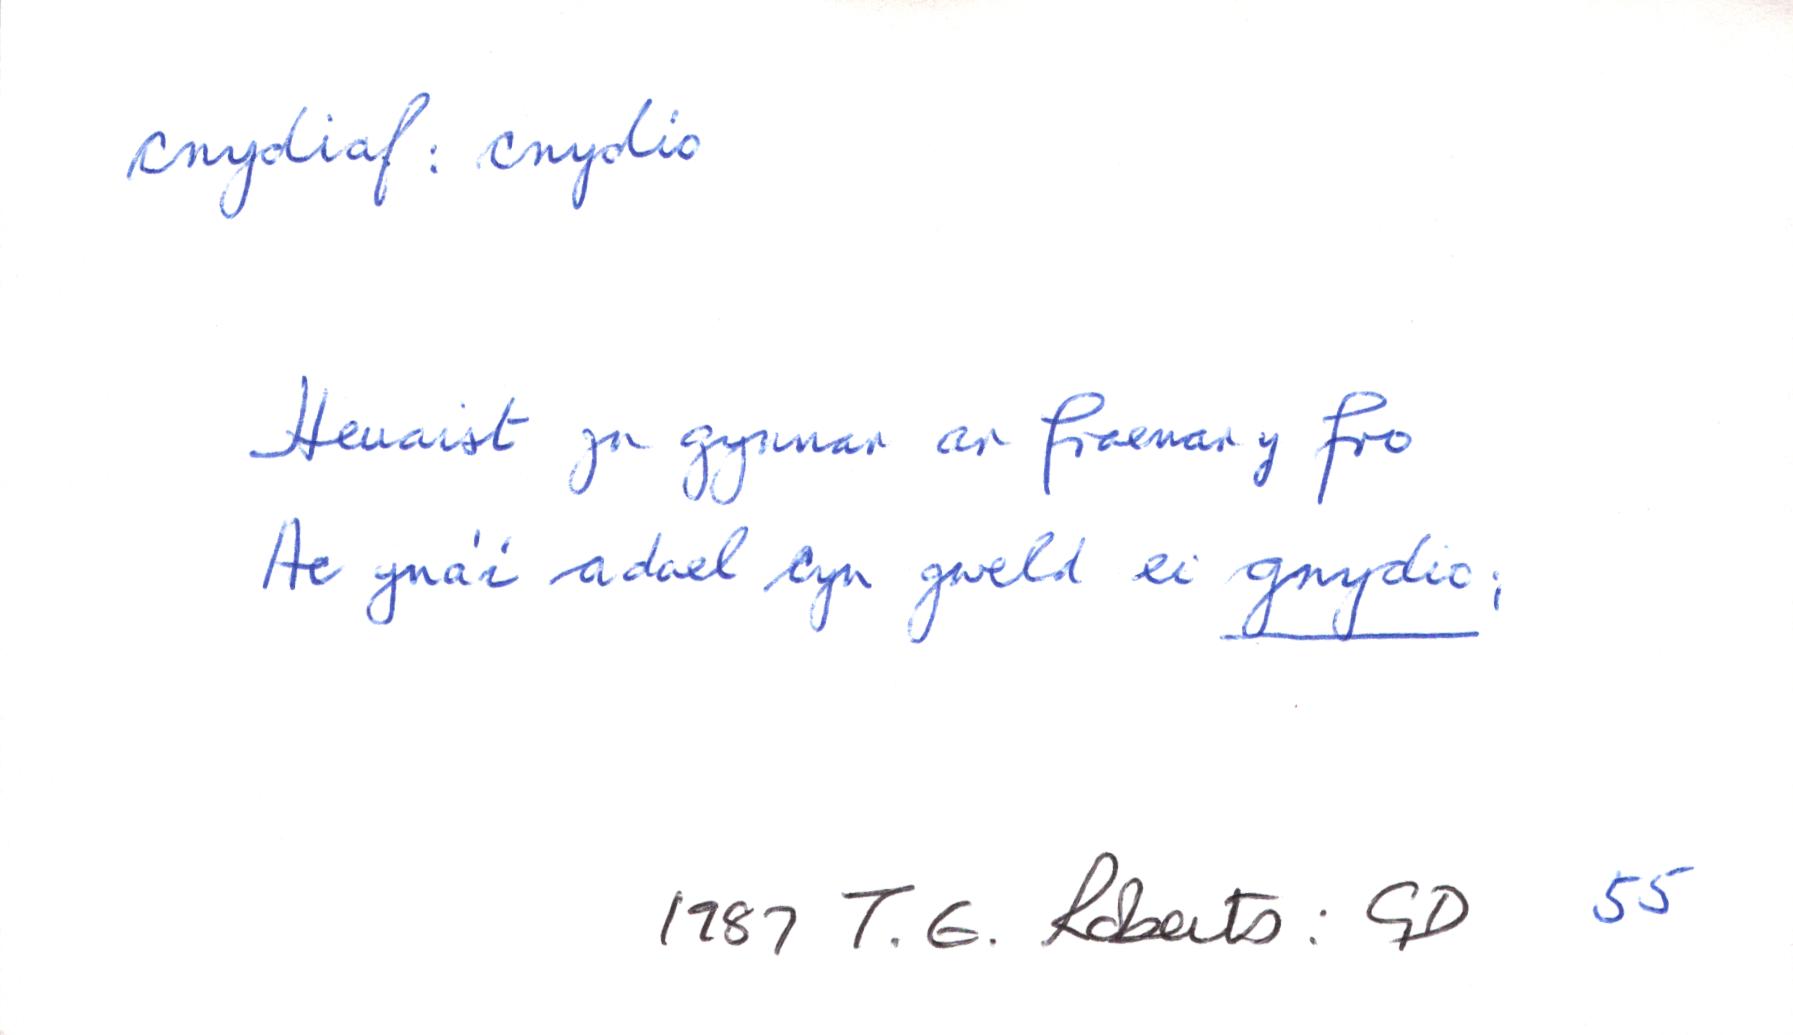 cnydiaf: cnydio
Heuaist yn gynnar ar fraenar y fro
Ac yna'i adael cyn gweld ei gnydio;
1987 T. G. Roberts: GD 55